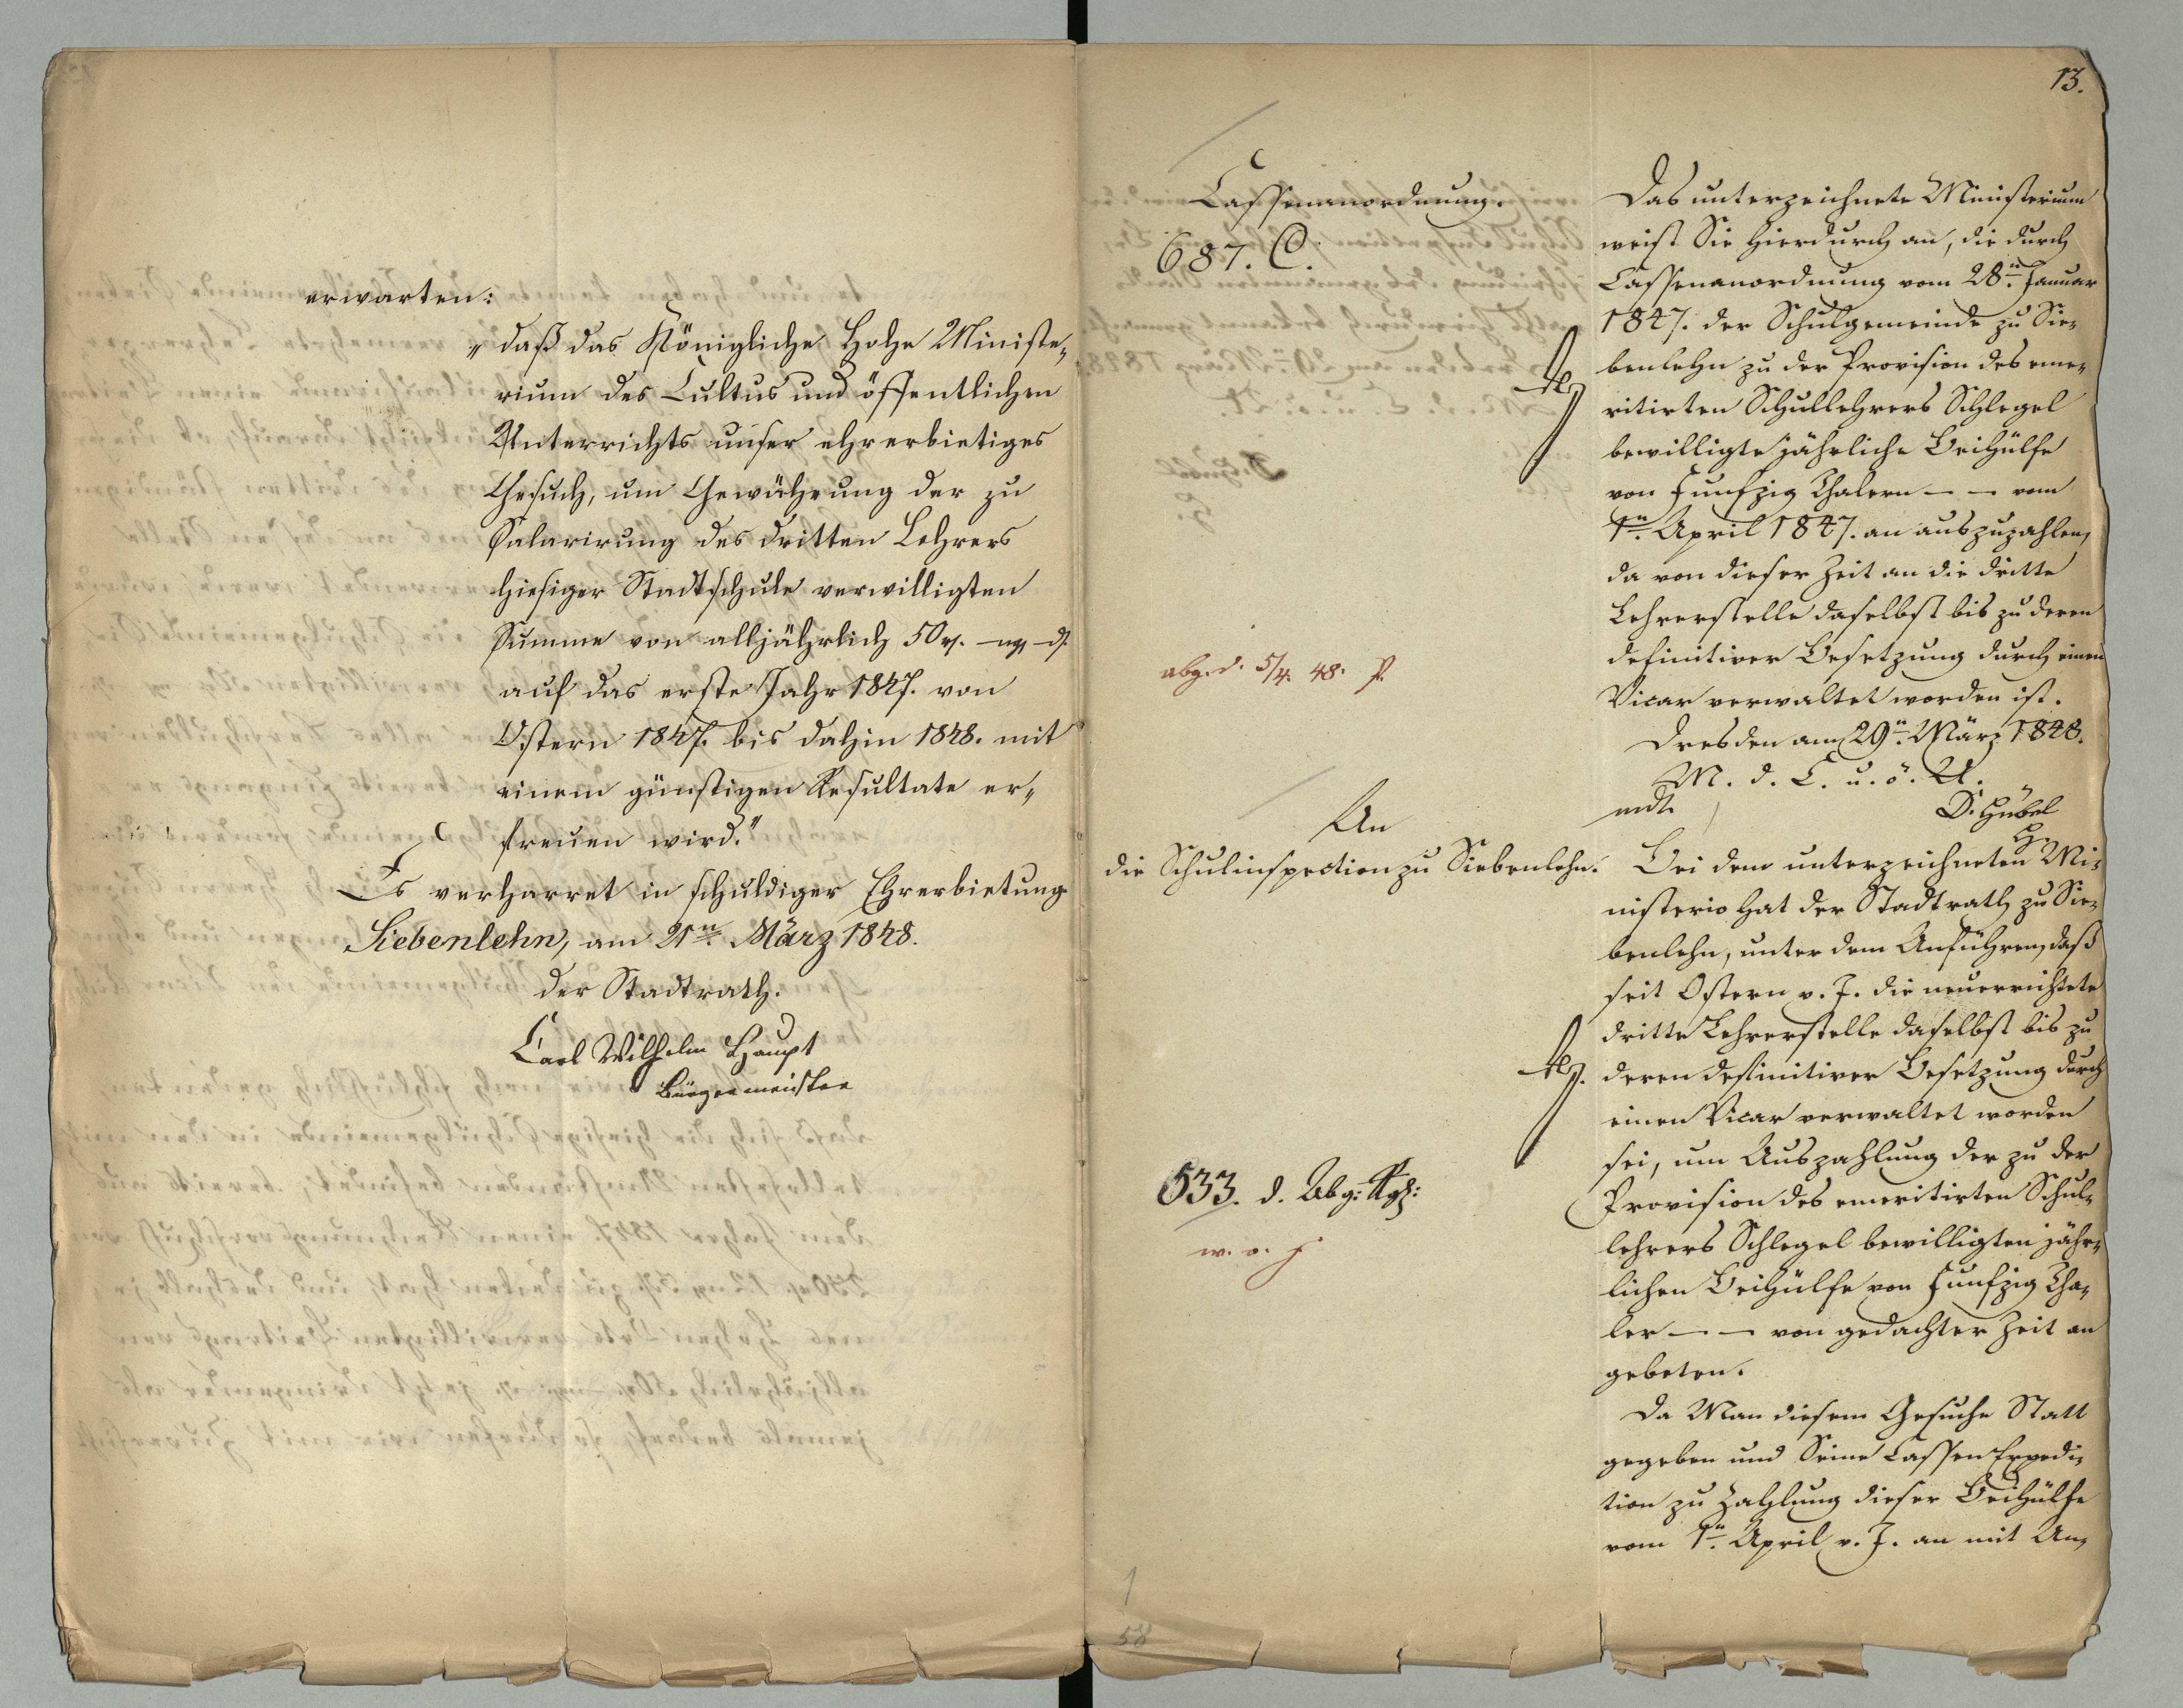 erwarten:
„daß das Königliche Hohe Ministe„
rium des Cultus und öffentlichen
Unterrichts unser ehrerbietiges
Gesuch, um Gewährung der zu
Salarirung des dritten Lehrers
hiesiger Stadtschule verwilligten
Summe von alljährlich 50 rf. – ngr – d.
auf das erste Jahr 1847. von
Ostern 1847. bis dahin 1848. mit
einem günstigen Resultate er„
freuen wird."
Es verharret in schuldiger Ehrerbietung
Siebenlehn, am 21n. März 1848.
der Stadtrath.
Carl Wilhelm Haupt
Bürgermeister
13.
Cassenanordnung.
687. C.
Das unterzeichnete Ministerium
weist Sie hierdurch an, die durch
Cassenanordnung vom 28n. Januar
1847. der Schulgemeinde zu Sie„
benlehn zu der Provision des eme„
ritirten Schullehrers Schlegel
bewilligte jährliche Beihülfe
von Funfzig Thalern – – vom
1n. April 1847. an auszuzahlen,
da von dieser Zeit an die dritte
Lehrerstelle daselbst bis zu deren
definitiver Besetzung durch einen
Vicar verwaltet worden ist.
Dresden am 29n. März 1848.
M. d. C. u. ö. U.
mdt.
D. Hübel
abg. d. 5/4. 48.
An
die Schulinspection zu Siebenlehn.
Bei dem unterzeichneten Mi„
nisterio hat der Stadtrath zu Sie„
benlehn, unter dem Anführen, daß
seit Ostern v. J. die neuerrichtete
dritte Lehrerstelle daselbst bis zu
deren definitiver Besetzung durch
einen Vicar verwaltet worden
sei, um Auszahlung der zu der
Provision des emeritirten Schul„
lehrers Schlegel bewilligten jähr„
lichen Beihülfe von Funfzig Tha„
ler – – von gedachter Zeit an
gebeten.
Da Man diesem Gesuche Statt
gegeben und Seine Cassen Expedi„
tion zu Zahlung dieser Beihülfe
vom 1n. April v. J. an mit An„
533. d. Abg: Rgs:
w. o.
1
58